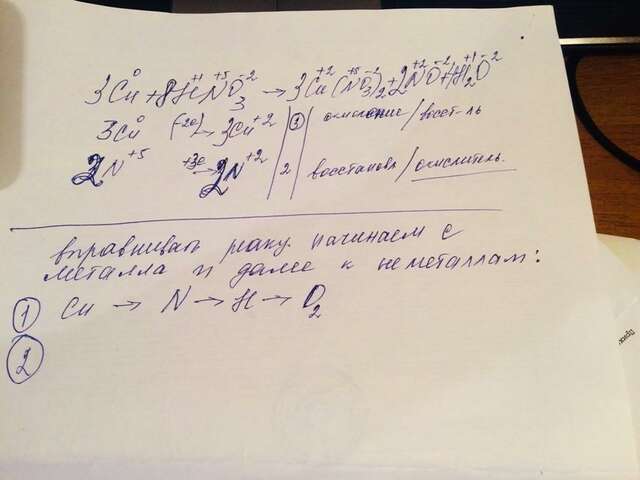 3Cu⁰ + 8H⁺¹N⁺⁵O₃⁻² → 3Cu⁺²(N⁺⁵O₃⁻²)₂ + 2N⁺²O⁻² + 4H₂⁺¹O⁻²
3Cu⁰ (-2e)→ 3Cu⁺² | 3 | окисление / восст-ль
2N⁺⁵ +3e→ 2N⁺² | 2 | восстановл / окислитель.
вправнивать начинаем с
металла и далее к неметаллам:
① Cu → N → H → O₂
②